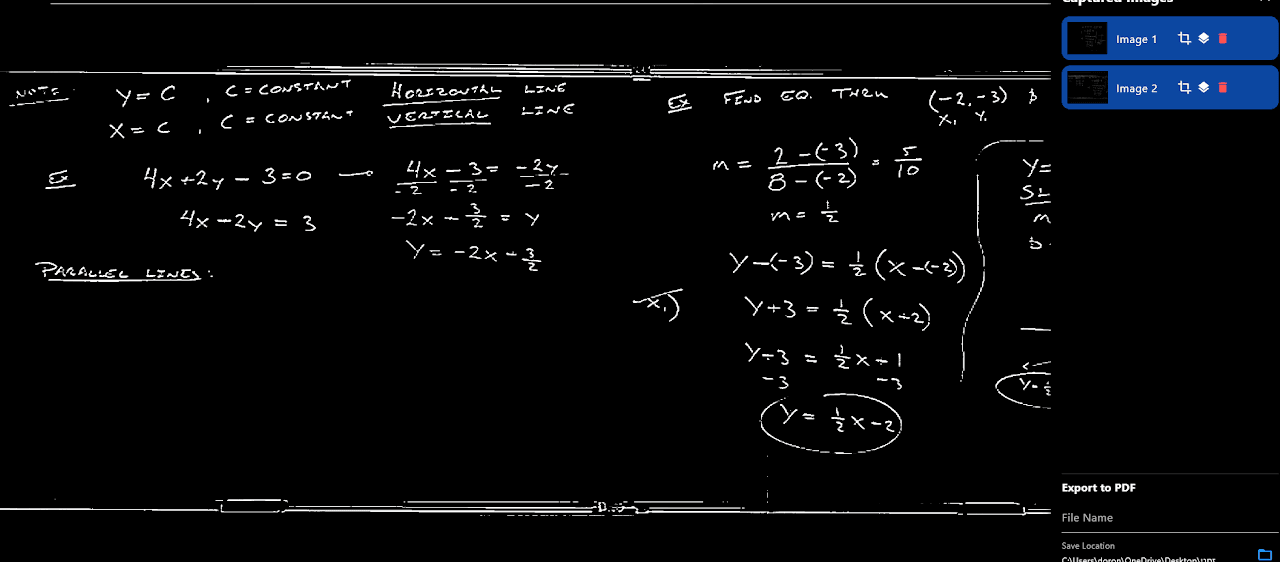 NOTE: Y = C , C = CONSTANT HORIZONTAL LINE
X = C , C = CONSTANT VERTICAL LINE
Ex 4x+2y-3=0 → 4x-3 = -2y
-2 -2 -2
4x-2y = 3
-2x-3/2 = y
Y = -2x-3/2
PARALLEL LINES:
Ex FIND EQ. THRU (-2,-3) &
X₁ Y₁
m = 2-(-3) / 8-(-2) = 5/10
m = 1/2
Y-(-3) = 1/2 (x-(-2))
x₁)
Y+3 = 1/2 (x+2)
Y-3 = 1/2x+1
-3 -3
Y = 1/2x-2
Y=
m
b
Y=1/2
Captured Images
Image 1
Image 2
Export to PDF
File Name
Save Location
C:\Users\doron\OneDrive\Desktop\